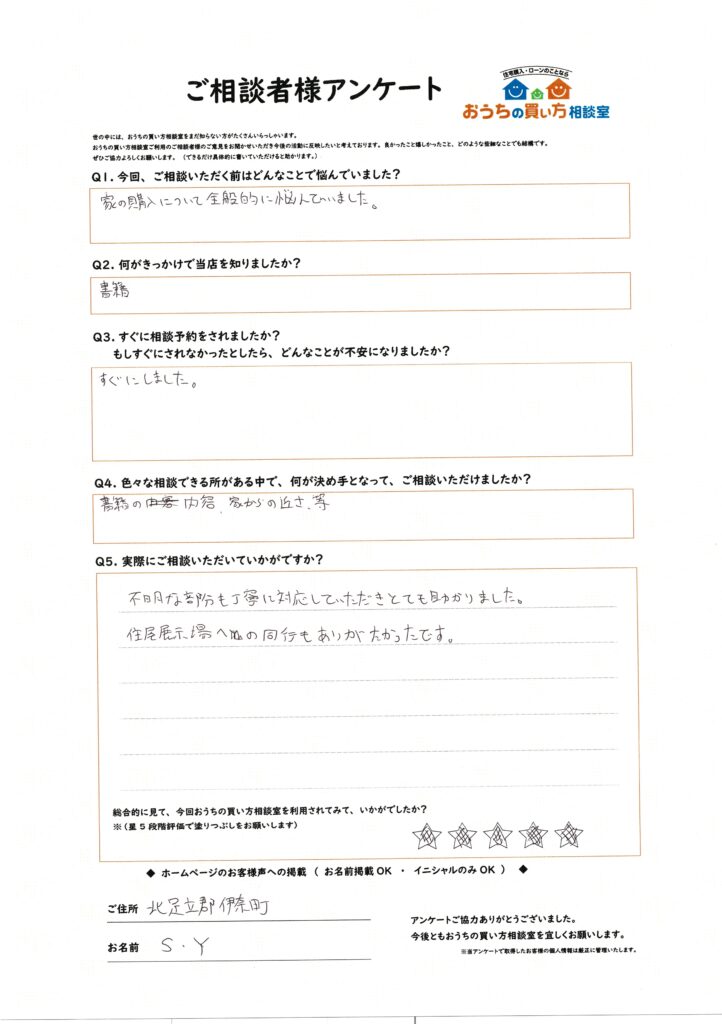 ご相談者様アンケート
住宅購入・ローンのことなら
おうちの買い方相談室
世の中には、おうちの買い方相談室をまだ知らない方がたくさんいらっしゃいます。
おうちの買い方相談室ご利用のご相談者様のご意見をお聞かせいただき今後の活動に反映したいと考えております。良かったこと嬉しかったこと、どのような些細なことでも結構です。
ぜひご協力よろしくお願いします。（できるだけ具体的に書いていただけると助かります。）
Q1. 今回、ご相談いただく前はどんなことで悩んでいました？
家の購入について全般的に悩んでいました。
Q2. 何がきっかけで当店を知りましたか？
書籍
Q3. すぐに相談予約をされましたか？
もしすぐにされなかったとしたら、どんなことが不安になりましたか？
すぐにしました。
Q4. 色々な相談できる所がある中で、何が決め手となって、ご相談いただけましたか？
書籍の内容、家からの近さ、等
Q5. 実際にご相談いただいていかがですか？
不明な部分も丁寧に対応していただきとても助かりました。
住宅展示場への同行もありがたかったです。
総合的に見て、今回おうちの買い方相談室を利用されてみて、いかがでしたか？
※（星5段階評価で塗りつぶしをお願いします）
◆ ホームページのお客様声への掲載（ お名前掲載OK ・ イニシャルのみOK ） ◆
ご住所 北足立郡伊奈町
お名前 S・Y
アンケートご協力ありがとうございました。
今後ともおうちの買い方相談室を宜しくお願いします。
※当アンケートで取得したお客様の個人情報は厳正に管理いたします。